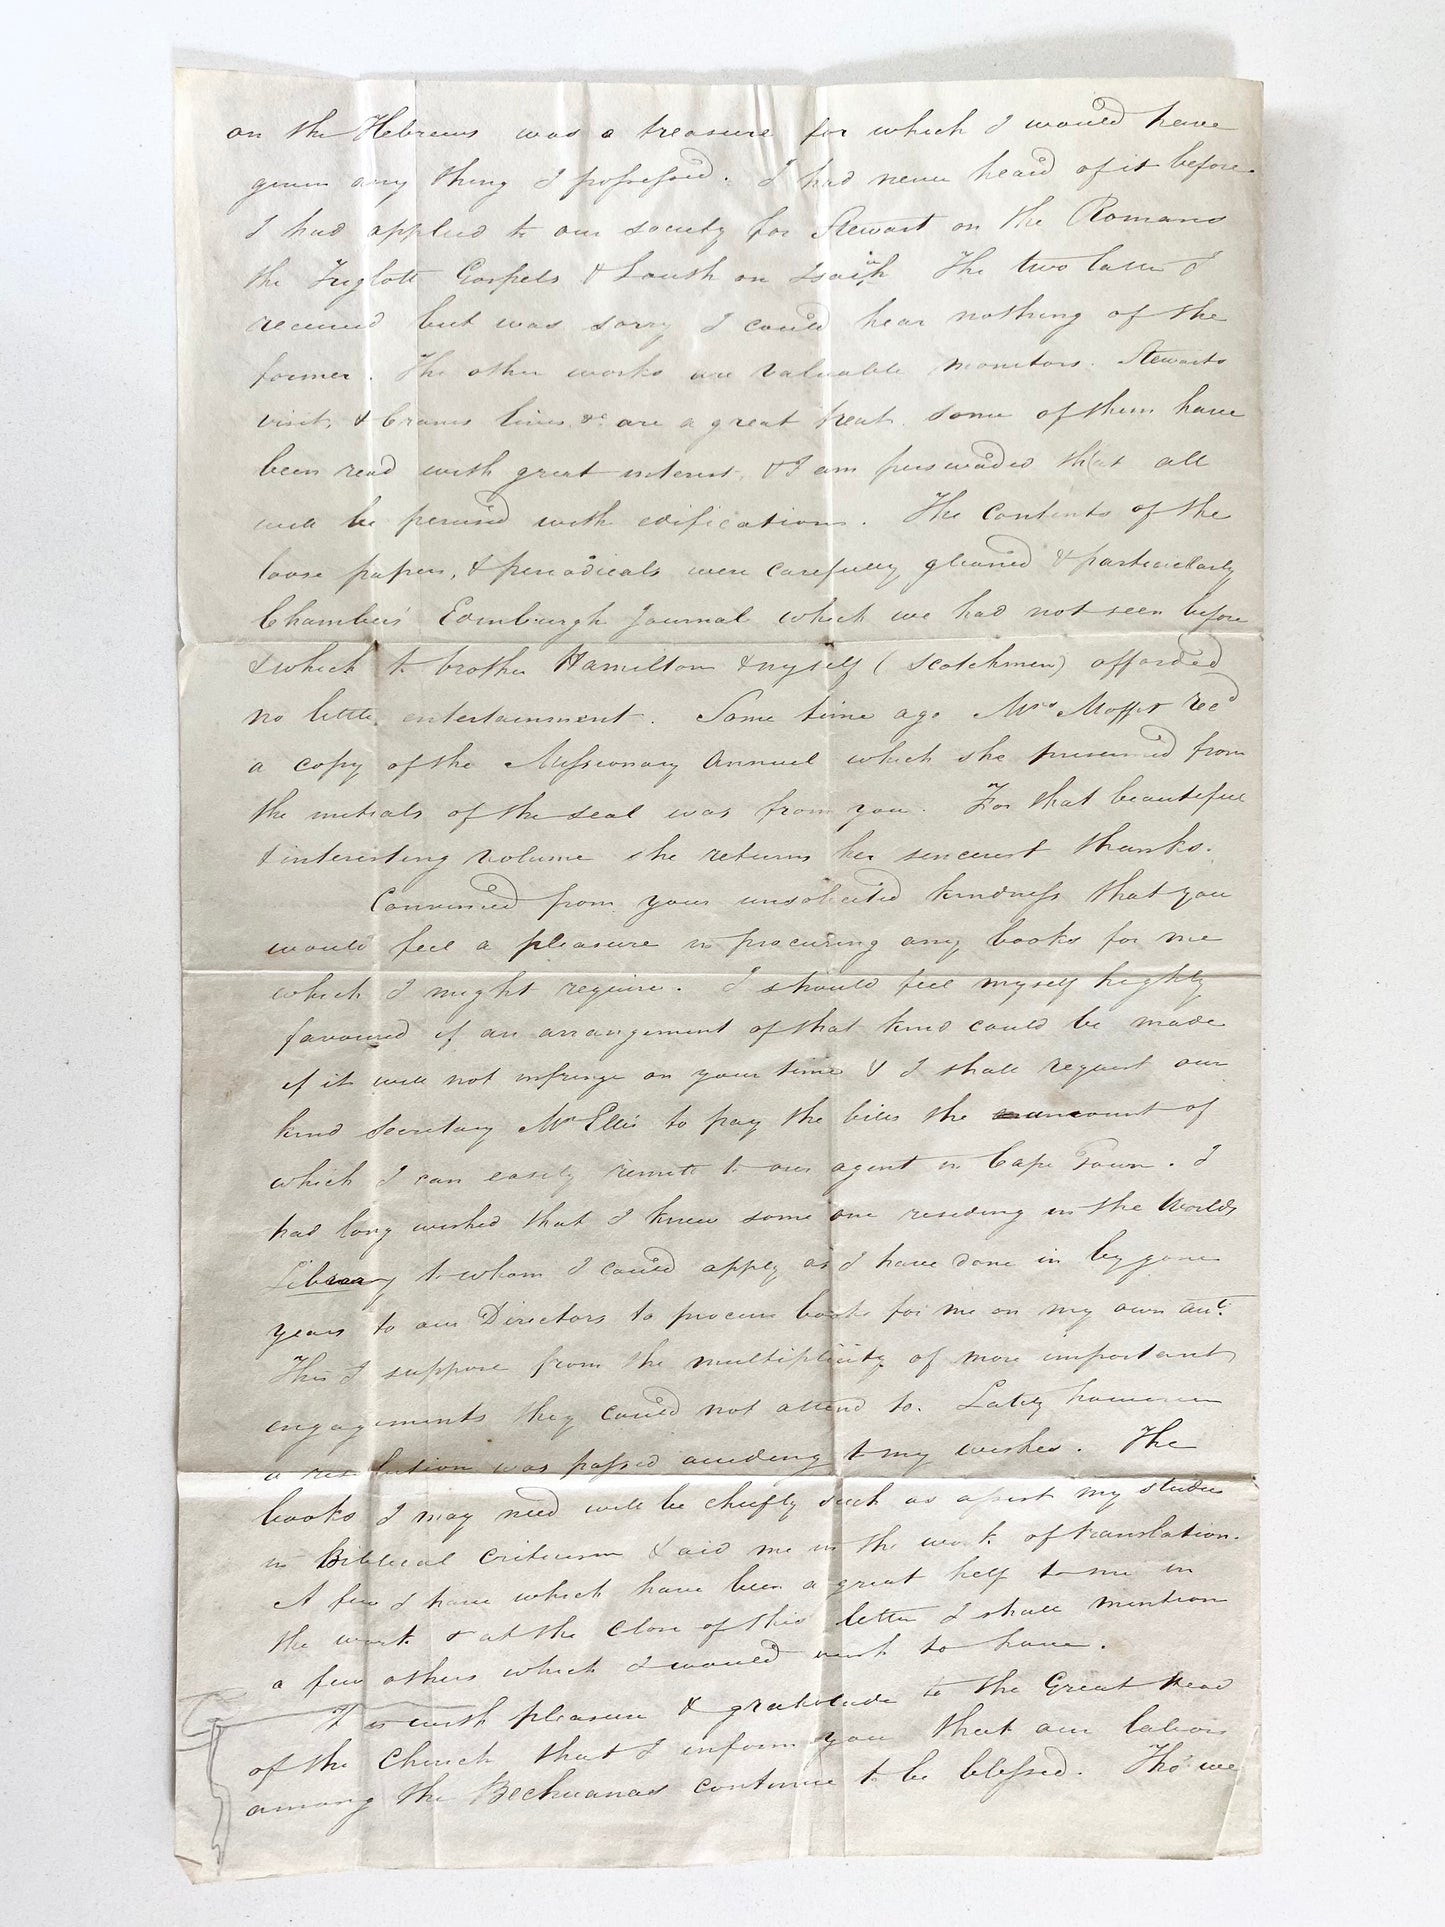 on the Hebrews was a treasure for which I would have
given any thing I possessed. I had never heard of it before.
I had applied to our society for Stewart on the Romans
the Triglott Gospels & Louth on Isaiah The two latter I
received but was sorry I could hear nothing of the
former. The other works are valuable monitors. Stewarts
visit, & lives &c are a great treat some of them have
been read with great interest, & I am perswaded that all
will be perused with edification. The contents of the
loose papers, & periodicals were carefully gleaned & particularly
Chambers' Edinburgh Journal which we had not seen before
& which to brother Hamilton & myself (Scotchmen) afforded
no little entertainment. Some time ago Mrs Moffat recd
a copy of the Missionary Annual which she presumed from
the initials of the seal was from you. For that beautiful
& interesting volume she returns her sincerest thanks.
Convinced from your unsolicited kindness that you
would feel a pleasure in procuring any books for me
which I might require. I should feel myself highly
favoured if an arrangement of that kind could be made
if it will not infringe on your time & I shall request our
kind Secretary Mr Ellis to pay the bills the amount of
which I can easily remitt to our agent in Cape Town. I
had long wished that I knew some one residing in the Worlds
Library to whom I could apply as I have done in bygone
years to our Directors to procure books for me on my own act.
This I suppose from the multiplicity of more important
engagements they could not attend to. Lately however
a resolution was passed acceding to my wishes. The
books I may need will be chiefly such as assist my studies
in Biblical criticism & aid me in the work of translation.
A few I have which have been a great help to me in
the work & at the close of this letter I shall mention
a few others which I would wish to have.
It is with pleasure & gratitude to the Great Head
of the Church that I inform you that our labours
among the Bechuanas continue to be blessed. Tho' we